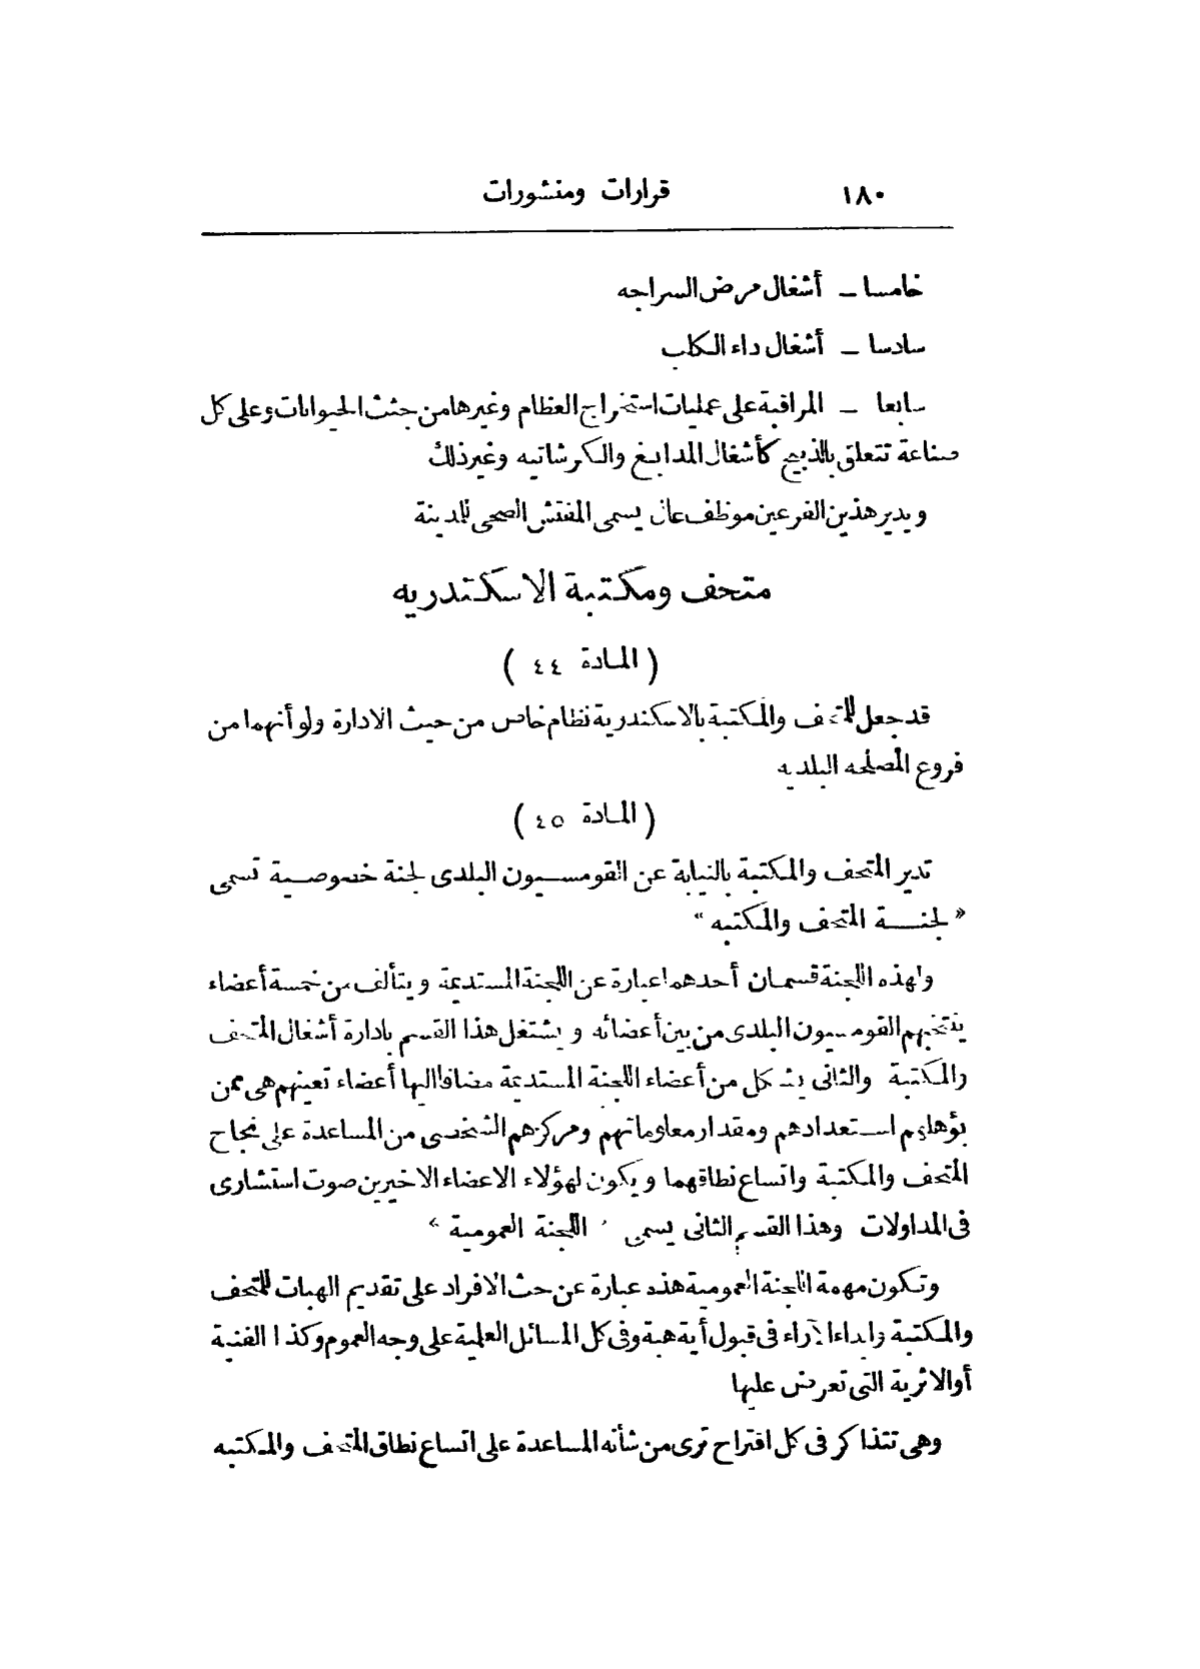 ١٨٠ قرارات ومنشورات
خامسا ــ أشغال مرض السراجه
سادسا ــ أشغال داء الكلب
سابعا ــ المراقبة على عمليات استخراج العظام وغيرها من جثث الحيوانات وعلى كل
صناعة تتعلق بالذبح كأشغال المدابغ والكرشاتيه وغير ذلك
ويدير هذين الفرعين موظف عال يسمى المفتش الصحى للمدينة
متحف ومكتبة الاسكندريه
( المادة ٤٤ )
قد جعل للمتحف والمكتبة بالاسكندرية نظام خاص من حيث الادارة ولو أنهما من
فروع المصلحه البلديه
( المادة ٤٥ )
تدير المتحف والمكتبة بالنيابة عن القومسيون البلدى لجنة خصوصية تسمى
« لجنة المتحف والمكتبه »
ولهذه اللجنة قسمان أحدهما عبارة عن اللجنة المستديمة ويتألف من خمسة أعضاء
ينتخبهم القومسيون البلدى من بين أعضائه ويشتغل هذا القسم بادارة أشغال المتحف
والمكتبة والثانى يشكل من أعضاء اللجنة المستديمة مضافا اليها أعضاء تعينهم هى ممن
يؤهلهم استعدادهم ومقدار معلوماتهم ومركزهم الشخصى من المساعدة على نجاح
المتحف والمكتبة واتساع نطاقهما ويكون لهؤلاء الاعضاء الاخيرين صوت استشارى
فى المداولات وهذا القسم الثانى يسمى « اللجنة العمومية »
وتكون مهمة اللجنة العمومية هذه عبارة عن حث الافراد على تقديم الهبات للمتحف
والمكتبة وابداء الآراء فى قبول أية هبة وفى كل المسائل العلمية على وجه العموم وكذا الفنية
أو الاثرية التى تعرض عليها
وهى تتذاكر فى كل اقتراح ترى من شأنه المساعدة على اتساع نطاق المتحف والمكتبه